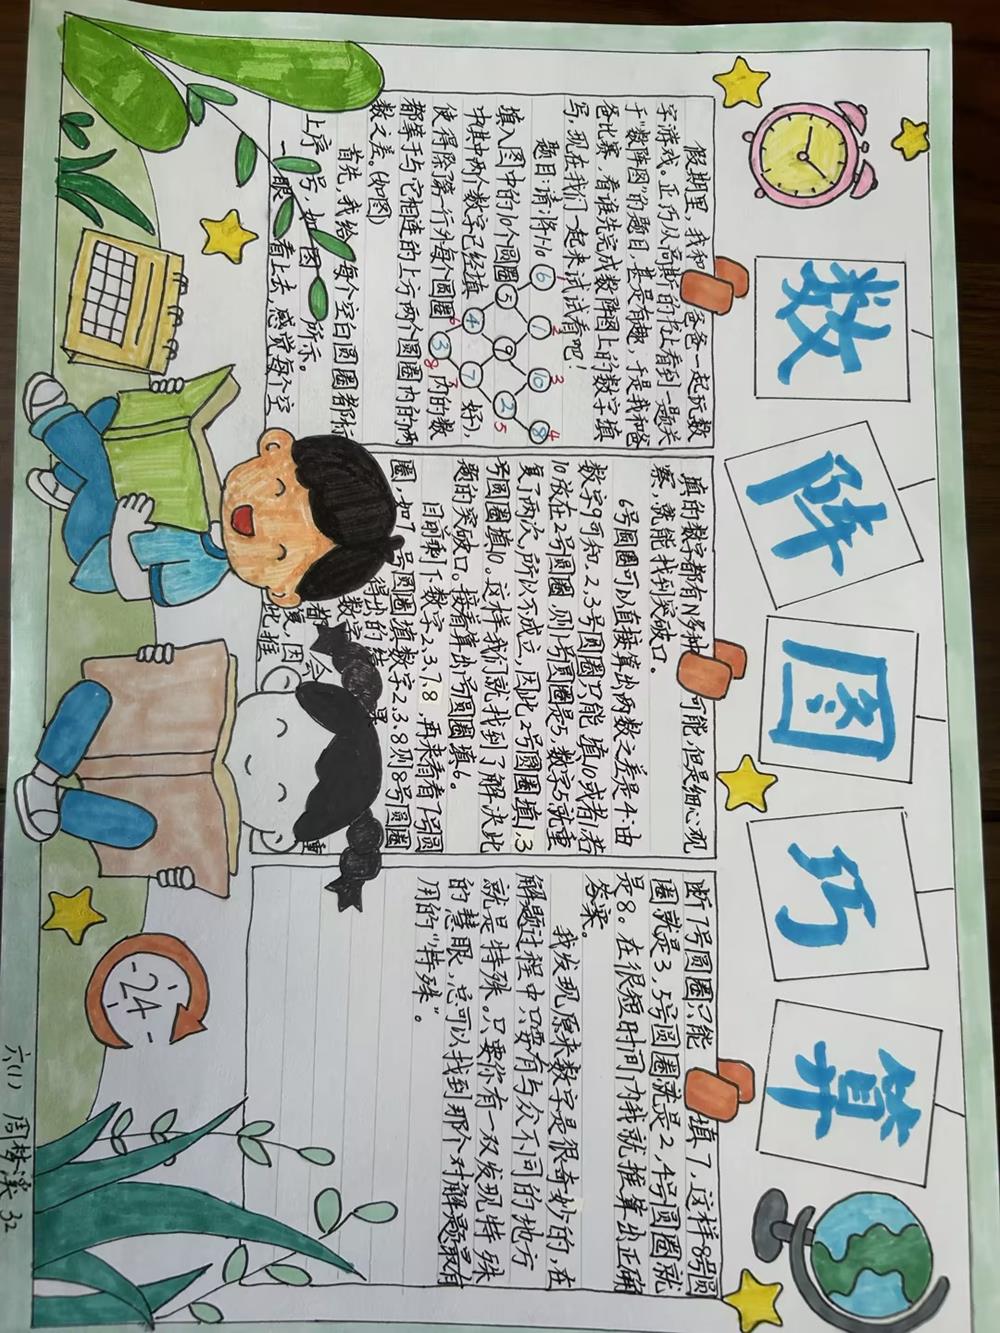 数阵图巧算
假期里,我和爸爸一起玩数
字游戏。正巧从哥斯的书上看到一题关
于"数阵图"的题目,甚是有趣,于是我和爸
爸比赛,看谁先完成数阵图上的数字填
写,现在我们一起来试试看吧!
题目:请将1-10
填入图中的10个圆圈
中,其中两个数字已经填好,
使得除了第一行外每个圆圈内的数
都等于与它相连的上方两个圆圈内的两
数之差。(如图)
6 1 10 8
5 9 2
4 7
3
1 2 3 4
5
6 7
8
首先,我给每个空白圆圈都标
上序号,如图所示。
一眼看上去,感觉每个空
填的数字都有N多种可能,但是细心观
察,就能找到突破口。
6号圆圈可以直接算出两数之差是4.由
数字9可知,2、3号圆圈只能填10或者1.若
10放在2号圆圈,则1号圆圈是5,数字5就重
复了两次,所以不成立,因此2号圆圈填1.3
号圆圈填10。这样我们就找到了解决此
题的突破口。接着算出1号圆圈填6。
目前剩下数字2、3、7、8,再来看看7号圆
圈,如7号圆圈填数字2、3、8则8号圆圈
得出的结果
数字
都会重
复,因
此推
断7号圆圈只能填7,这样8号圆
圈就是3,5号圆圈就是2,4号圆圈就
是8。在很短时间内我就推算出正确
答案。
我发现原来数字是很奇妙的,在
解题过程中只要有与众不同的地方
就是特殊。只要你有一双发现特殊
的慧眼,总可以找到那个对解题最有
用的"特殊"。
24
六(1) 周梦溪 32